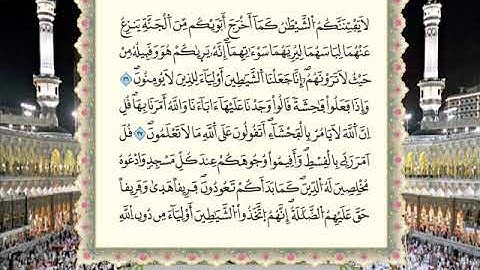 لَا يَفْتِنَنَّكُمُ ٱلشَّيْطَٰنُ كَمَآ أَخْرَجَ أَبَوَيْكُم مِّنَ ٱلْجَنَّةِ يَنزِعُ
عَنْهُمَا لِبَاسَهُمَا لِيُرِيَهُمَا سَوْءَٰتِهِمَآ إِنَّهُۥ يَرَىٰكُمْ هُوَ وَقَبِيلُهُۥ مِنْ
حَيْثُ لَا تَرَوْنَهُمْ إِنَّا جَعَلْنَا ٱلشَّيَٰطِينَ أَوْلِيَآءَ لِلَّذِينَ لَا يُؤْمِنُونَ ٢٧
وَإِذَا فَعَلُوا۟ فَٰحِشَةً قَالُوا۟ وَجَدْنَا عَلَيْهَآ ءَابَآءَنَا وَٱللَّهُ أَمَرَنَا بِهَا قُلْ
إِنَّ ٱللَّهَ لَا يَأْمُرُ بِٱلْفَحْشَآءِ أَتَقُولُونَ عَلَى ٱللَّهِ مَا لَا تَعْلَمُونَ ٢٨ قُلْ
أَمَرَ رَبِّى بِٱلْقِسْطِ وَأَقِيمُوا۟ وُجُوهَكُمْ عِندَ كُلِّ مَسْجِدٍ وَٱدْعُوهُ
مُخْلِصِينَ لَهُ ٱلدِّينَ كَمَا بَدَأَكُمْ تَعُودُونَ ٢٩ فَرِيقًا هَدَىٰ وَفَرِيقًا
حَقَّ عَلَيْهِمُ ٱلضَّلَٰلَةُ إِنَّهُمُ ٱتَّخَذُوا۟ ٱلشَّيَٰطِينَ أَوْلِيَآءَ مِن دُونِ ٱللَّهِ